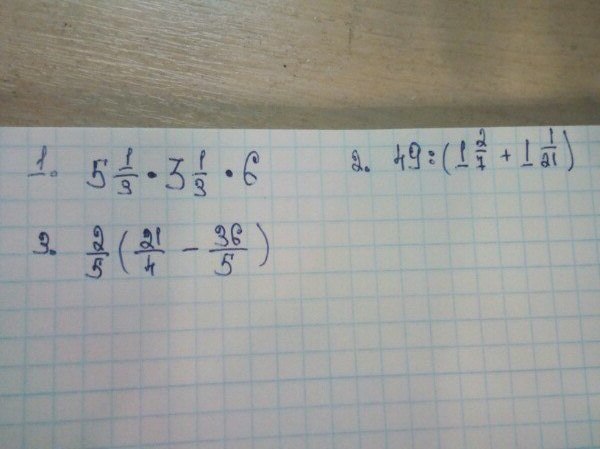 1. 5 1/3 · 3 1/3 · 6
2. 49 : (1 2/7 + 1 1/21)
3. 2/5 (21/4 − 36/5)